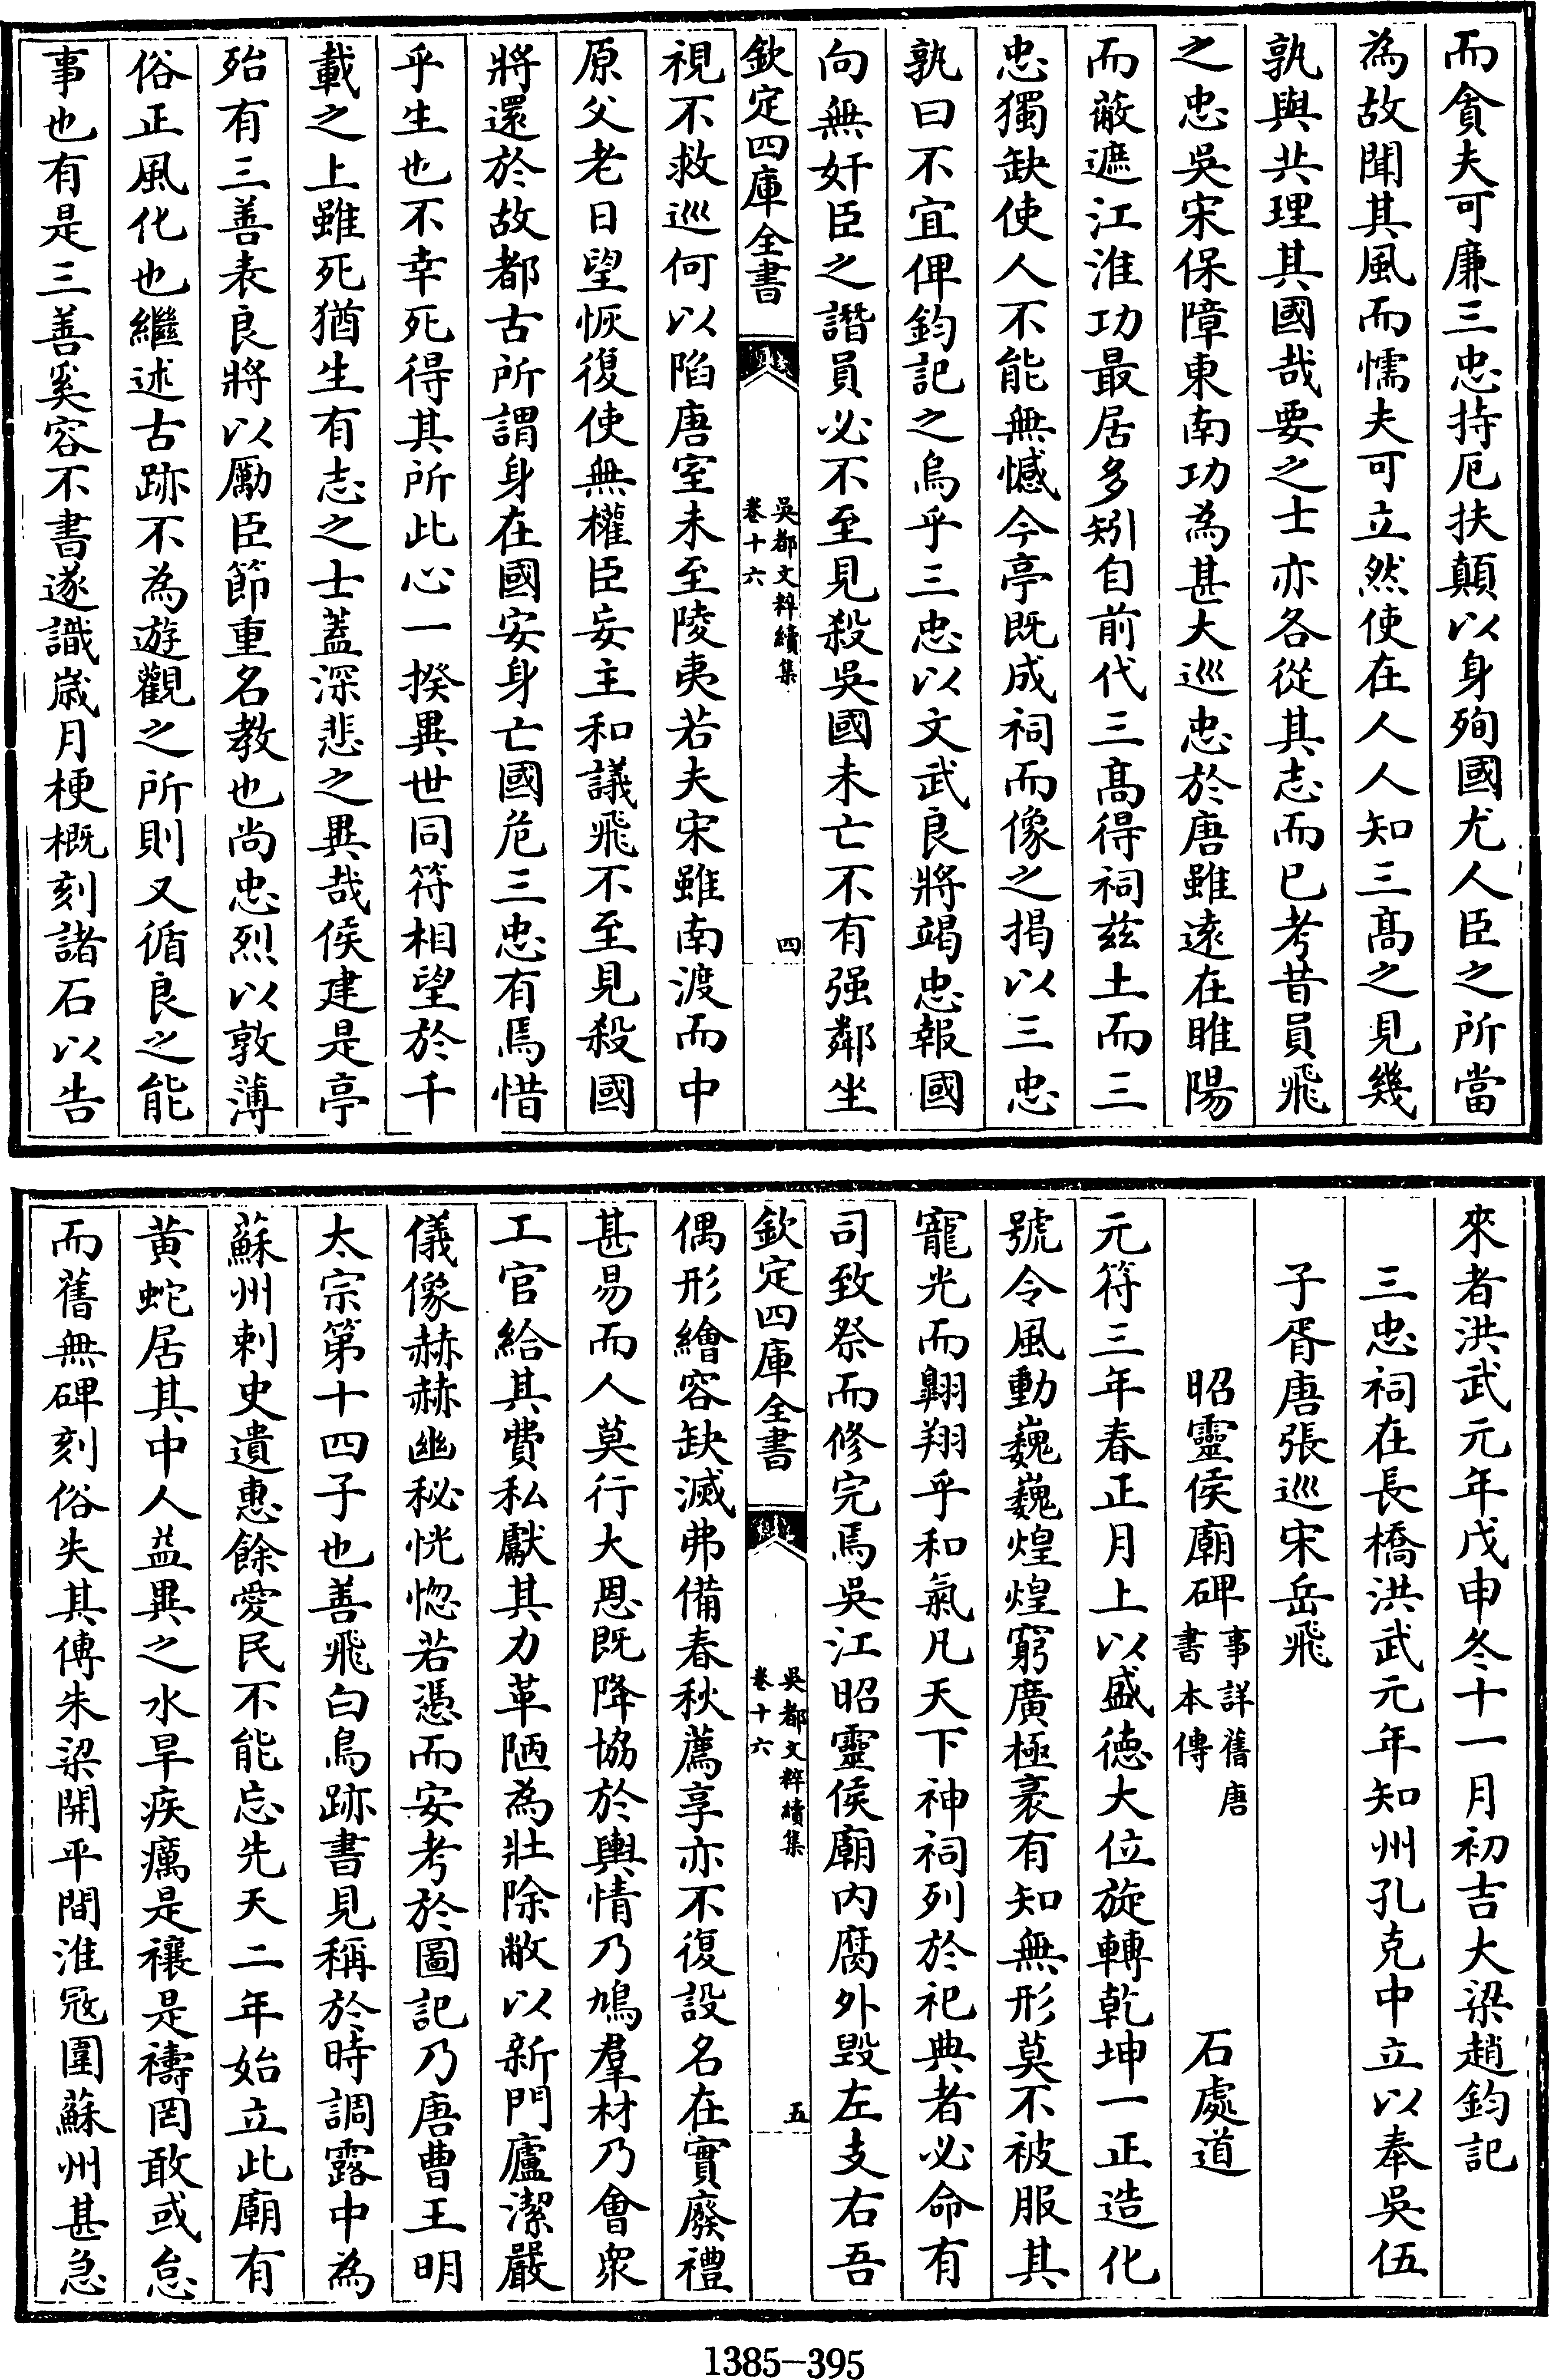 而貪夫可廉三忠持厄扶顛以身殉國尤人臣之所當
為故聞其風而懦夫可立然使在人人知三髙之見幾
孰與共理其國哉要之士亦各從其志而已考昔員飛
之忠吳宋保障東南功為甚大巡忠於唐雖遠在睢陽
而蔽遮江淮功最居多矧自前代三髙得祠兹土而三
忠獨缺使人不能無憾今亭既成祠而像之掲以三忠
孰曰不宜俾鈞記之烏乎三忠以文武良將竭忠報國
向無奸臣之譖員必不至見殺吳國未亡不有强鄰坐
欽定四庫全書
吳都文粹續集
卷十六
四
視不救巡何以陷唐室未至陵夷若夫宋雖南渡而中
原父老日望恢復使無權臣妄主和議飛不至見殺國
將還於故都古所謂身在國安身亡國危三忠有焉惜
乎生也不幸死得其所此心一揆異世同符相望於千
載之上雖死猶生有志之士蓋深悲之異哉侯建是亭
殆有三善表良將以勵臣節重名教也尚忠烈以敦薄
俗正風化也繼述古跡不為遊觀之所則又循良之能
事也有是三善奚容不書遂識歳月梗概刻諸石以告
來者洪武元年戊申冬十一月初吉大梁趙鈞記
三忠祠在長橋洪武元年知州孔克中立以奉吳伍
子胥唐張巡宋岳飛
昭靈侯廟碑 事詳舊唐
書本傳 石處道
元符三年春正月上以盛徳大位旋轉乾坤一正造化
號令風動巍巍煌煌窮廣極袤有知無形莫不被服其
寵光而翺翔乎和氣凡天下神祠列於祀典者必命有
司致祭而修完焉吳江昭靈侯廟内腐外毁左支右吾
欽定四庫全書
吳都文粹續集
卷十六
五
偶形繪容缺滅弗備春秋薦享亦不復設名在實廢禮
甚易而人莫行大恩既降協於輿情乃鳩羣材乃會衆
工官給其費私獻其力革陋為壯除敝以新門廬潔嚴
儀像赫赫幽秘恍惚若憑而安考於圖記乃唐曹王明
太宗第十四子也善飛白鳥跡書見稱於時調露中為
蘇州刺史遺惠餘愛民不能忘先天二年始立此廟有
黄蛇居其中人益異之水旱疾癘是禳是禱罔敢或怠
而舊無碑刻俗失其傳朱梁開平間淮冦圍蘇州甚急
1385-395